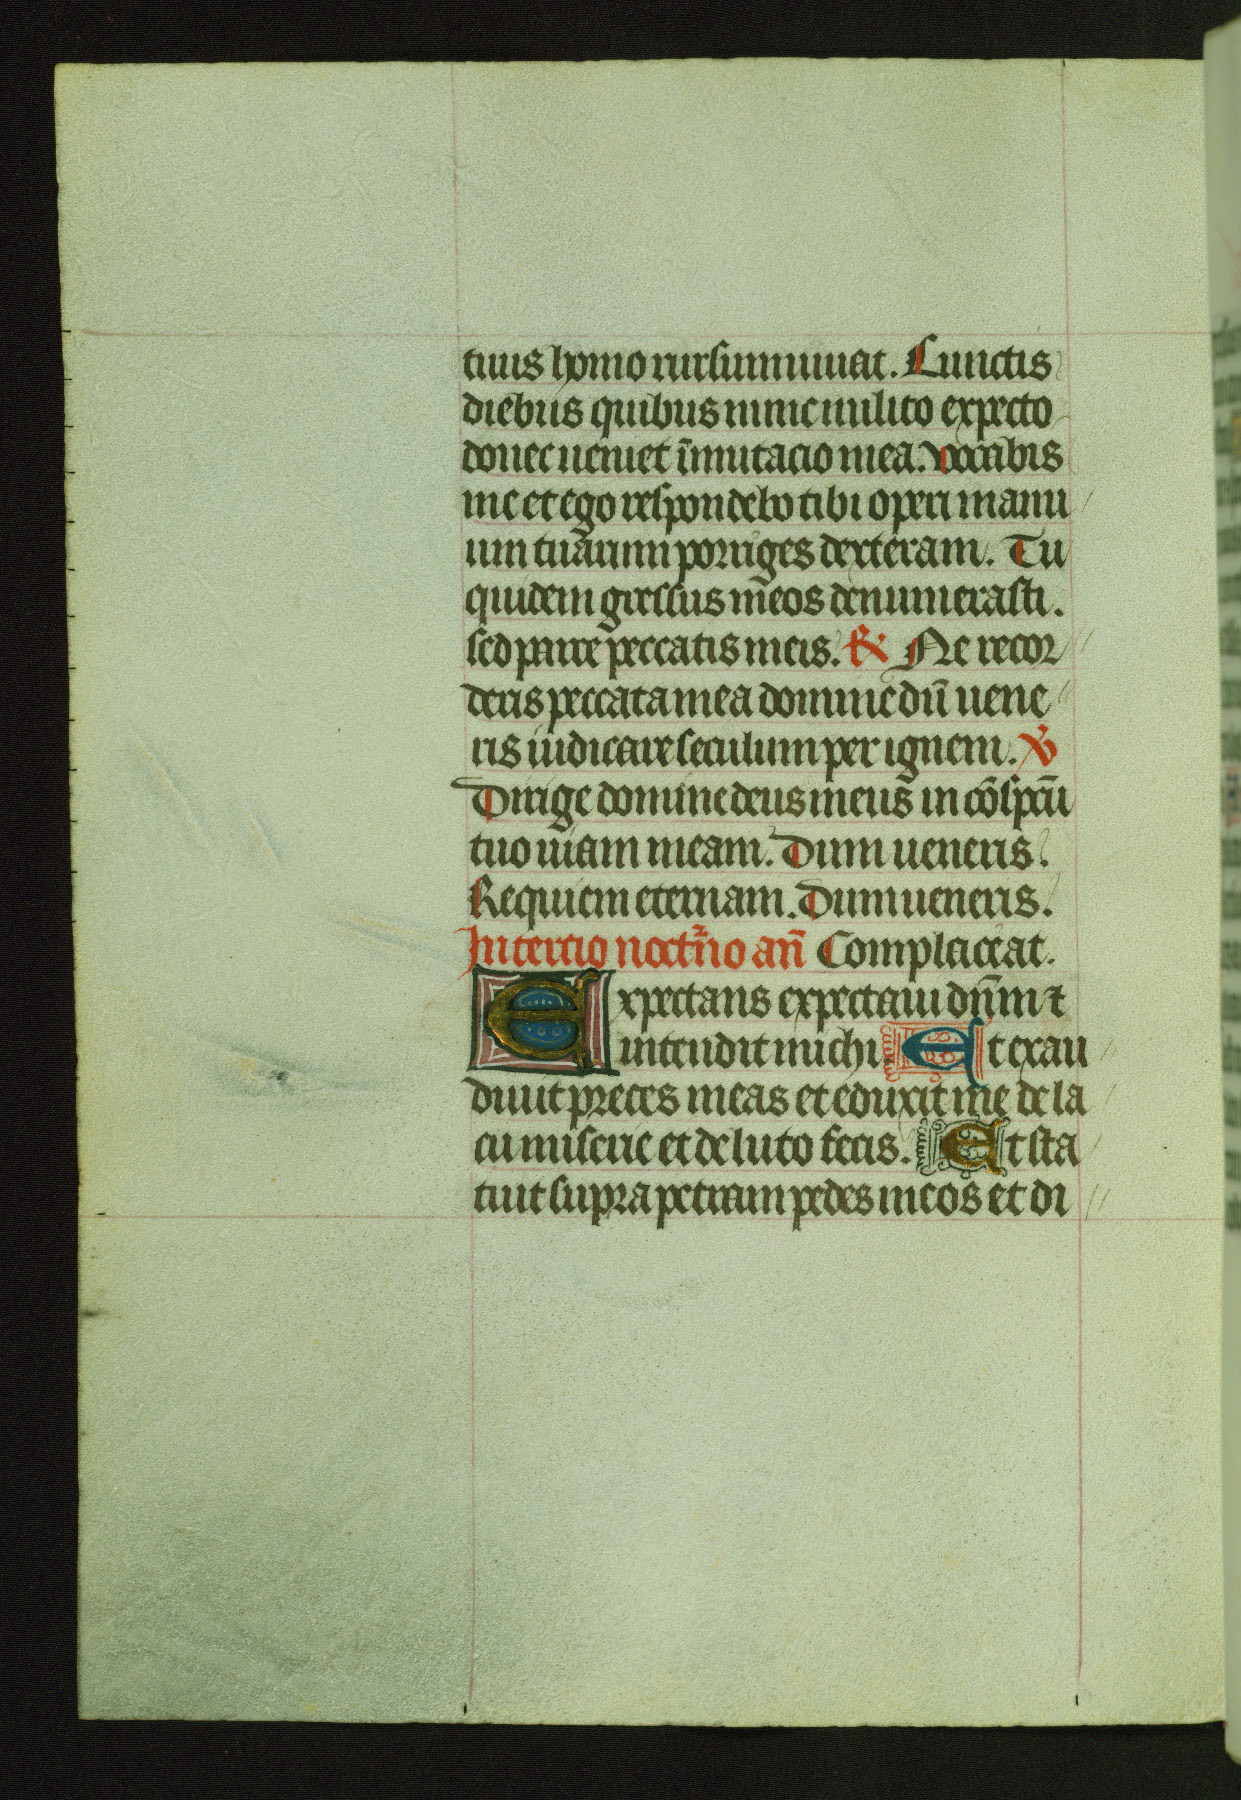 tuus homo rursum uiuat. Cunctis
diebus quibus nunc milito expecto
donec ueniet īmutacio mea. vocabis
me et ego respondebo tibi operi manu
um tuarum porriges dexteram. Tu
quidem gressus meos denumerasti.
sed parce peccatis meis. ℟ Ne recor
deris peccata mea domine dū uene
ris iudicare seculum per ignem. ℣
Dirige domine deus meus in cōspcū
tuo uiam meam. Dum ueneris.
Requiem eternam. Dum ueneris.
In tercio noctr̄no an̄ Complaceat.
Expectans expectaui dn̄m ⁊
intendit michi. Et exau
diuit preces meas et eduxit me de la
cu miserie et de luto fecis. Et sta
tuit supra petram pedes meos et di